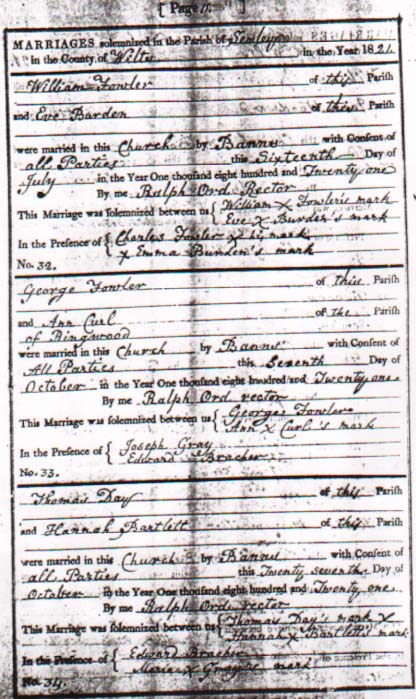 [ Page 11 ]
MARRIAGES solemnized in the Parish of Semley
in the County of Wilts in the Year 1821
William Fowler of this Parish
and Eve Burden of this Parish
were married in this Church by Banns with Consent of
all Parties this Sixteenth Day of
July in the Year One thousand eight hundred and Twenty one
By me Ralph Ord Rector
This Marriage was solemnized between us { William X Fowler's mark
Eve X Burden's mark
In the Presence of { Charles Fowler X his mark
X Emma Burden's mark
No. 32.
George Fowler of this Parish
and Ann Curl of the Parish
of Ringwood
were married in this Church by Banns with Consent of
All Parties this Seventh Day of
October in the Year One thousand eight hundred and Twenty one
By me Ralph Ord rector
This Marriage was solemnized between us { George Fowler
Ann X Curl's mark
In the Presence of { Joseph Gray
Edward Bracher
No. 33.
Thomas Day of this Parish
and Hannah Bartlett of this Parish
were married in this Church by Banns with Consent of
all Parties this Twenty seventh Day of
October in the Year One thousand eight hundred and Twenty one
By me Ralph Ord rector
This Marriage was solemnized between us { Thomas Day's mark X
Hannah X Bartlett's mark
In the Presence of { Edward Bracher
X mark
No. 34.